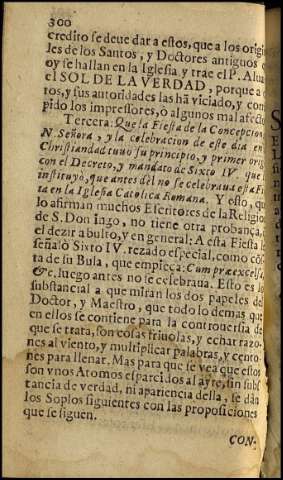 300
credito se deve dar a estos, que a los origi
les de los Santos, y Doctores antiguos
oy se hallan en la Iglesia y trae el P. Alua
el SOL DE LA VERDAD, porque a
tos, y sus autoridades las hà viciado, y
pido los impressores, ò algunos mal afecto
Tercera: Que la Fiesta de la Concepcion
N. Señora, y la celebracion de este dia en
Christiandad tuvo su principio, y primer orig
con el Decreto, y mandato de Sixto IV. que
instituyò, que antes del no se celebraua esta Fi
ta en la Iglesia Catolica Romana. Y esto, que
lo afirman muchos Escritores de la Religio
de S. Domingo, no tiene otra probança,
el dezir a bulto, y en general: A esta Fiesta
señalò Sixto IV. rezado especial, como cõ
ta de su Bula, que empieça: Cum præexcelsa,
&c. luego antes no se celebraua. Esto es lo
substancial a que miran los dos papeles del
Doctor, y Maestro, que todo lo demas que
en ellos se contiene para la controuersia de
que se trata, son cosas friuolas, y echar razo-
nes al viento, y multiplicar palabras, y cento
nes para llenar. Mas para que se vea que estos
son vnos Atomos esparcidos al ayre, sin subs
tancia de verdad, ni apariencia della, se dàn
los Soplos siguientes con las proposiciones
que se siguen.
CON-